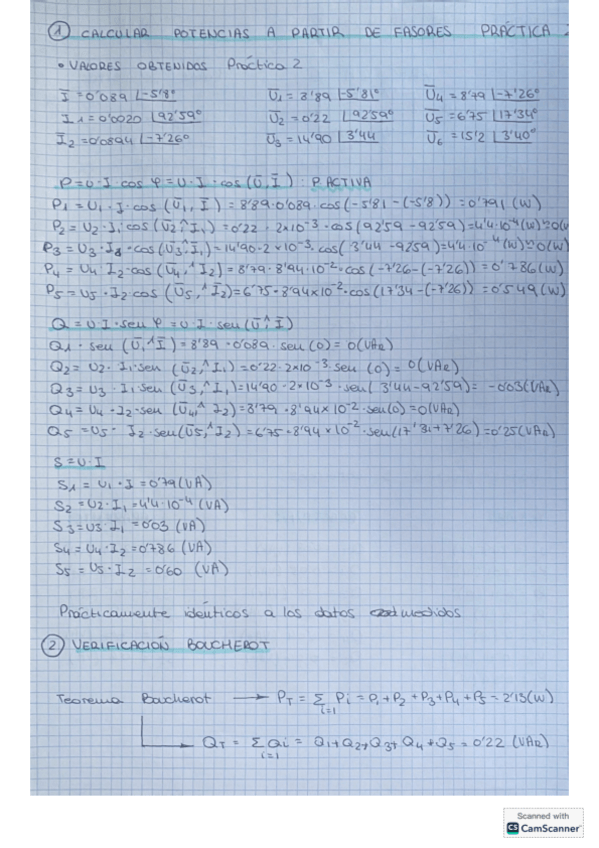 ① CALCULAR POTENCIAS A PARTIR DE FASORES PRÁCTICA
• VALORES OBTENIDOS Práctica 2
I̅ = 0'089 |-5'8° U̅1 = 8'89 |-5'81° U̅4 = 8'79 |-7'26°
I̅1 = 0'0020 |92'59° U̅2 = 0'22 |92'59° U̅5 = 6'75 |17'34°
I̅2 = 0'0894 |-7'26° U̅3 = 14'90 |3'44 U̅6 = 15'2 |3'40°
P = U·I cos φ = U·I·cos (U̅, I̅) : P. ACTIVA
P1 = U1 · I · cos (U̅1, I̅) = 8'89·0'089·cos(-5'81-(-5'8)) = 0'791 (W)
P2 = U2·I1 cos (U̅2^I̅1) = 0'22 · 2×10⁻³ ·cos (92'59-92'59) = 4'4·10⁻⁴(W)≈0(W
P3 = U3·I1 ·cos(U̅3^I̅1) = 14'90·2×10⁻³·cos( 3'44-9259) = 4'4·10⁻⁴ (W)≈0(W)
P4 = U4·I2·cos (U4,^I2) = 8'79·8'94·10⁻²·cos(-7'26-(-7'26)) = 0'786 (W)
P5 = U5·I2 cos (U̅5,^I̅2) = 6'75·8'94×10⁻²·cos(17'34-(-7'26)) = 0'549 (W)
Q = U·I·sen φ = U·I·sen (U̅^I̅)
Q1 · sen (U̅1^I̅) = 8'89·0'089·sen (0) = 0(VAR)
Q2 = U2· I1·sen (U̅2,^I1) = 0'22·2×10⁻³·sen (0) = 0(VAR)
Q3 = U3 · I1·sen (U̅3,^I1) = 14'90·2×10⁻³·sen( 3'44-92'59) = -0'03(VAR)
Q4 = U4 · I2·sen (U̅4,^I2) = 8'79 · 8'94×10⁻²·sen(0) = 0(VAR)
Q5 = U5· I2·sen(U̅5,^I2) = 6'75·8'94×10⁻²·sen(17'34+7'26) = 0'25(VAR)
S = U·I
S1 = U1 · I = 0'79(VA)
S2 = U2·I1 = 4'4·10⁻⁴ (VA)
S3 = U3·I1 = 0'03 (VA)
S4 = U4·I2 = 0'786 (VA)
S5 = U5·I2 = 0'60 (VA)
Prácticamente idénticos a los datos medidos
② VERIFICACIÓN BOUCHEROT
Teorema Boucherot → PT = Σ Pi = P1+P2+P3+P4+P5 = 2'13(W)
i=1
→ QT = Σ Qi = Q1+Q2+Q3+Q4+Q5 = 0'22 (VAR)
i=1
Scanned with
CS CamScanner